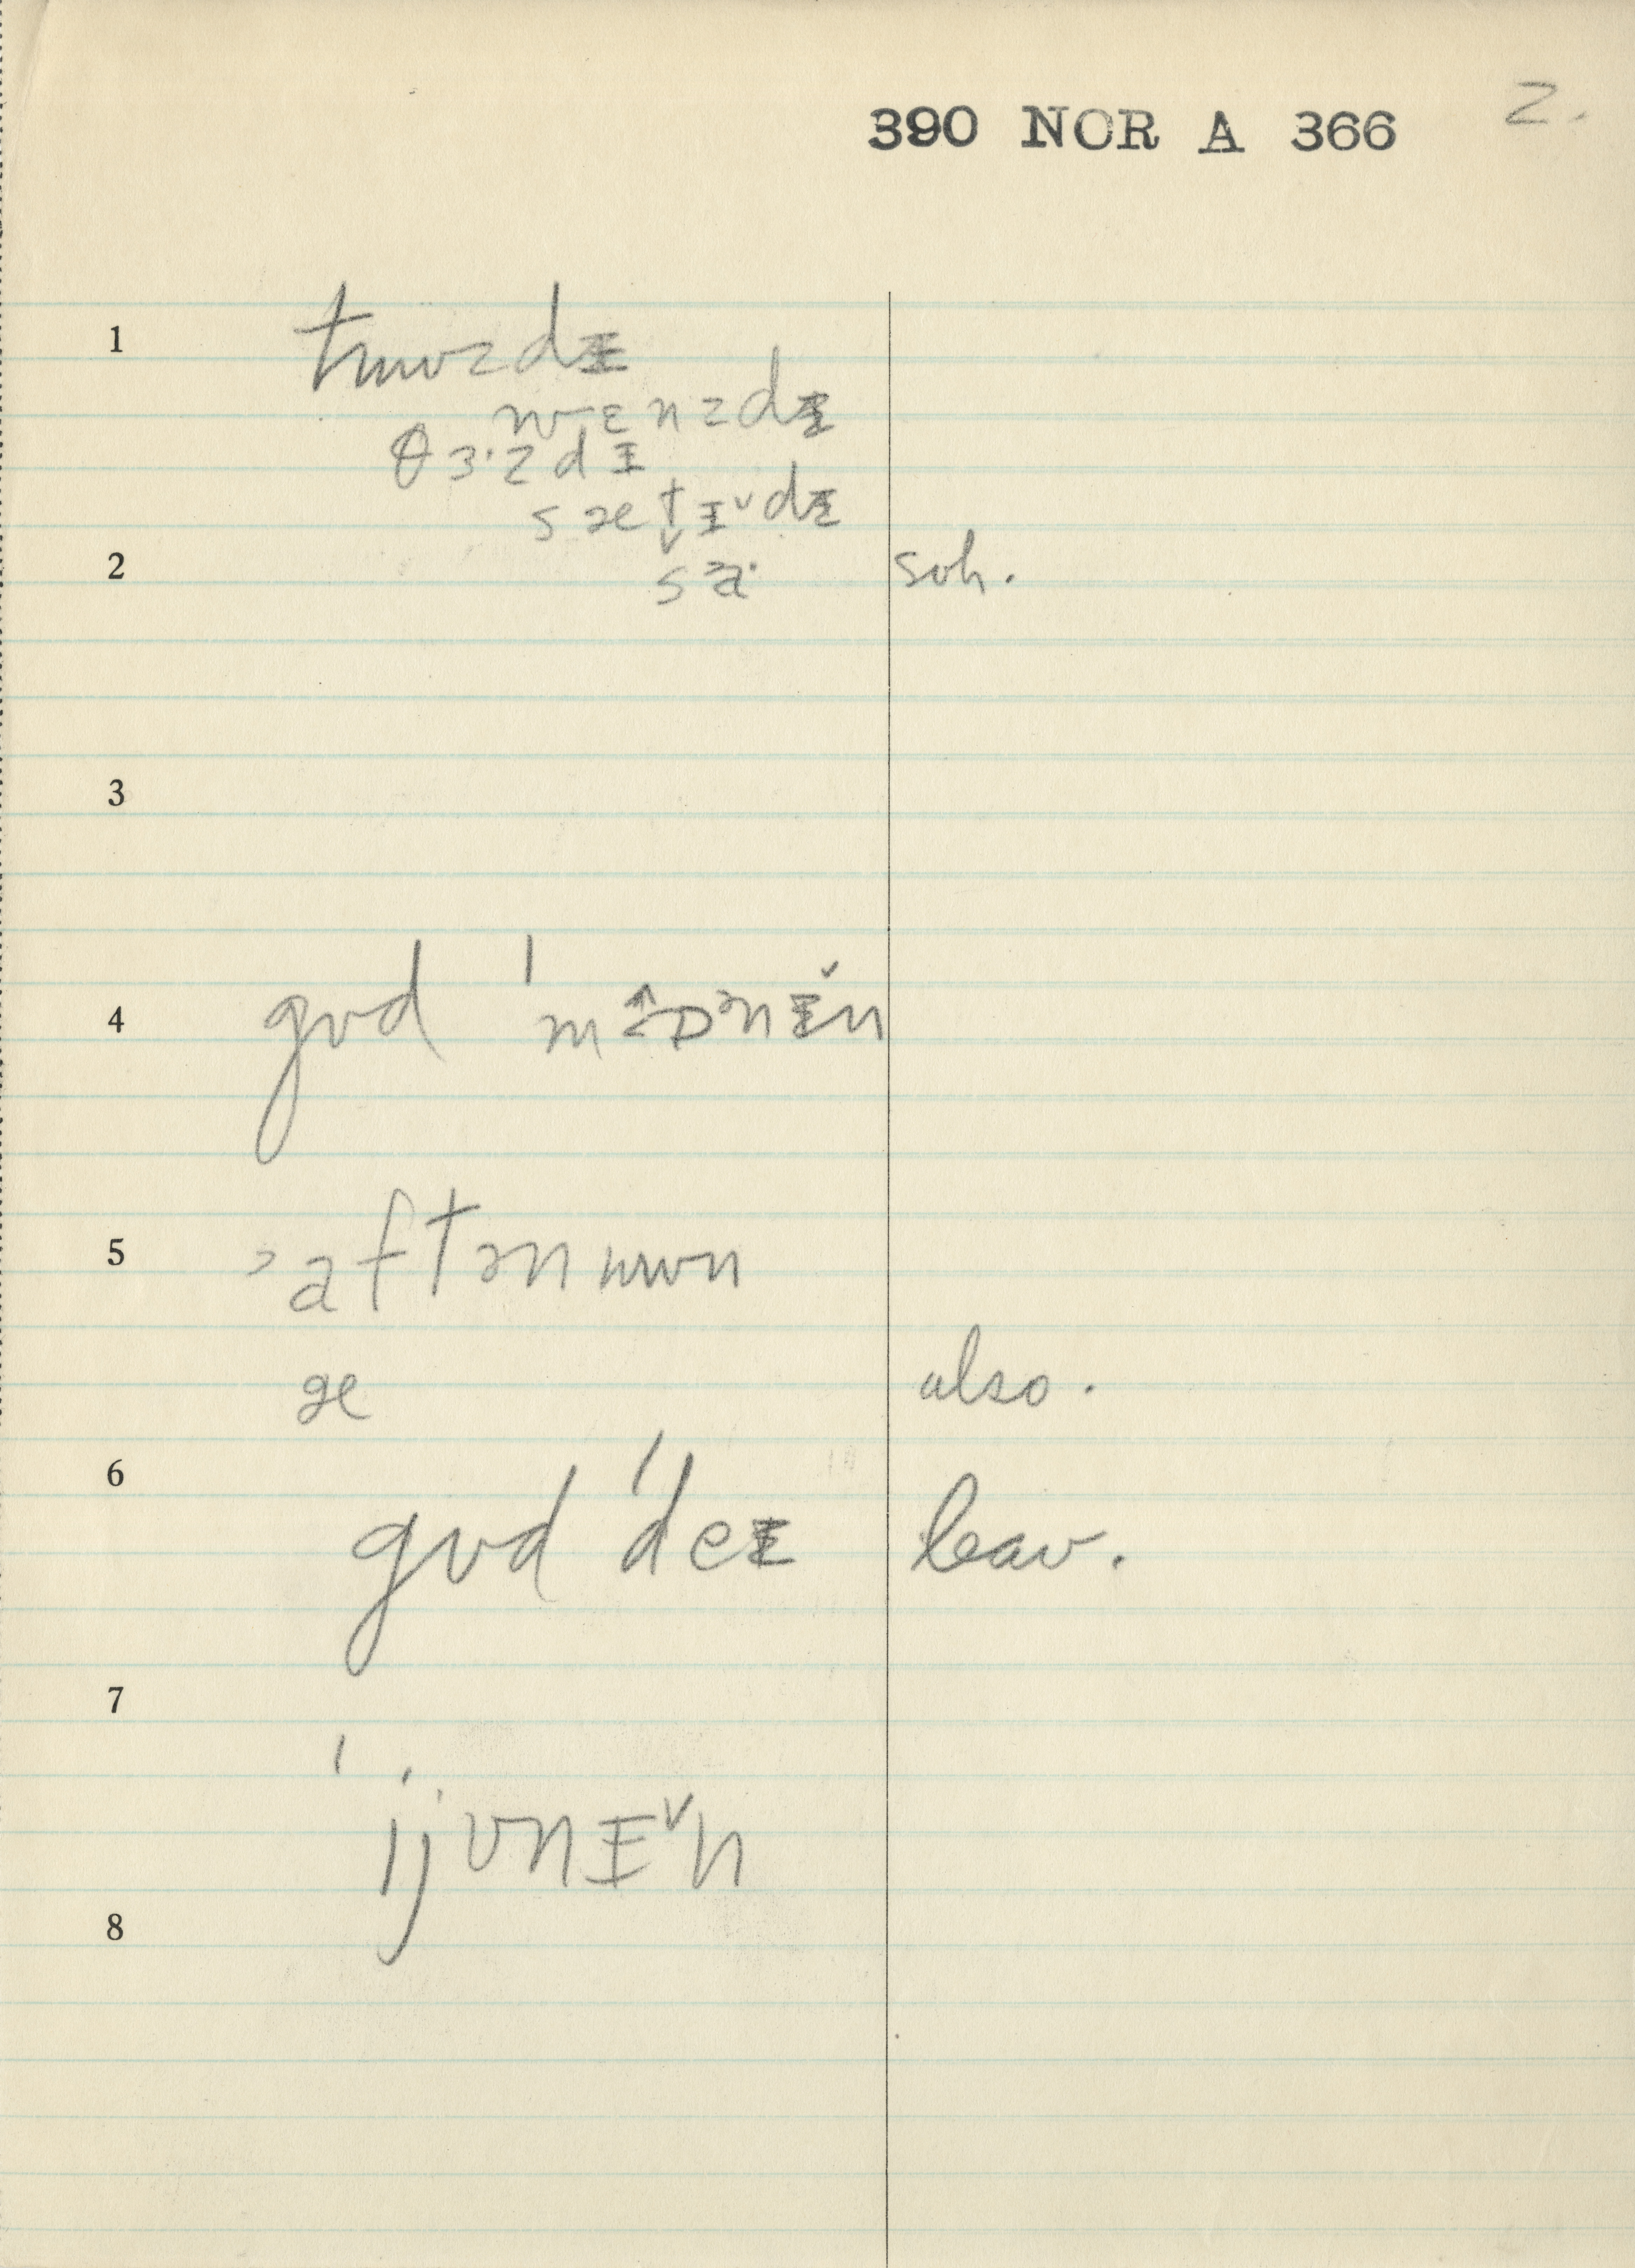 390 NOR A 366 2.
1 tɯʊzdɪ
wɛnzdɪ
θɜ·zdɪ
sæt̬ɪ˅dɪ
2 sa· soh.
3
4 gʊd 'mɔ̂ɒənɪ̌n
5 >aftənɯʊn
æ also.
6 gʊd 'deɪ leav.
7
'ijvnɪ˅n
8